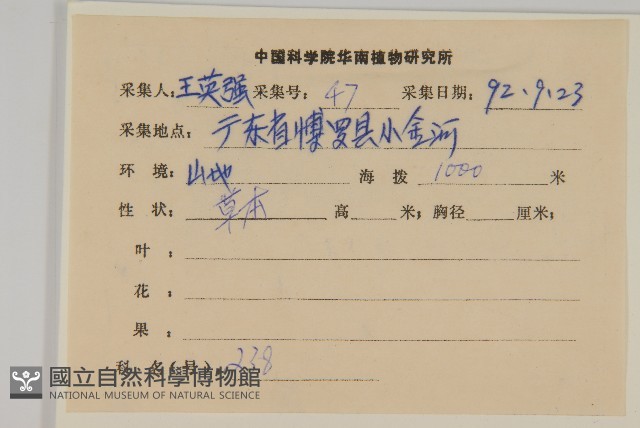 中国科学院华南植物研究所
采集人：王英强 采集号：47 采集日期：92.9.23
采集地点：广东省博罗县小金河
环 境：山地 海 拨 1000 米
性 状：草本 高 米；胸径 厘米；
叶 ：
花 ：
果 ：
科 名（号）：238
國立自然科學博物館
NATIONAL MUSEUM OF NATURAL SCIENCE